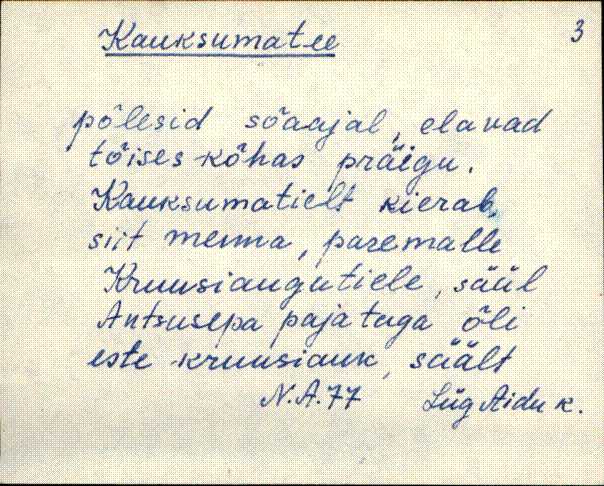 Kauksumatee
3
põlesid sõaajal, elavad
tõises kõhas präigu.
Kauksumatielt kierab,
siit menna, paremalle
Kruusiaugutiele, sääl
Antsusepa paja taga õli
este kruusiauk, säält
N.A.77 Lüg Aidu k.